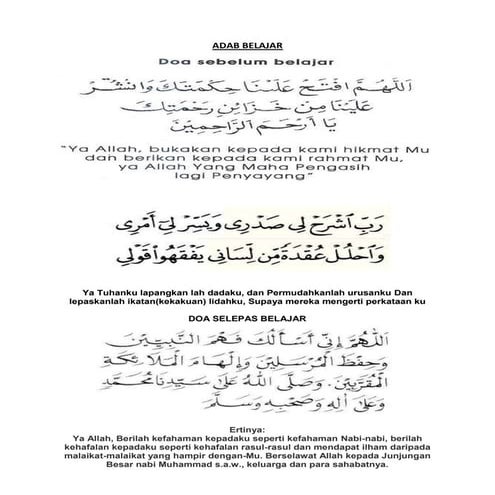 ADAB BELAJAR
Doa sebelum belajar
اَللَّهُمَّ افْتَحْ عَلَيْنَا حِكْمَتَكَ وَانْشُرْ
عَلَيْنَا مِنْ خَزَائِنِ رَحْمَتِكَ
يَا أَرْحَمَ الرَّاحِمِيْنَ
"Ya Allah, bukakan kepada kami hikmat Mu
dan berikan kepada kami rahmat Mu,
ya Allah Yang Maha Pengasih
lagi Penyayang"
رَبِّ اشْرَحْ لِي صَدْرِي وَيَسِّرْ لِي أَمْرِي
وَاحْلُلْ عُقْدَةً مِّن لِّسَانِي يَفْقَهُوا قَوْلِي
Ya Tuhanku lapangkan lah dadaku, dan Permudahkanlah urusanku Dan
lepaskanlah ikatan(kekakuan) lidahku, Supaya mereka mengerti perkataan ku
DOA SELEPAS BELAJAR
اَللَّهُمَّ إِنِّي أَسْأَلُكَ فَهْمَ النَّبِيِّيْنَ
وَحِفْظَ الْمُرْسَلِيْنَ وَإِلْهَامَ الْمَلَائِكَةِ
الْمُقَرَّبِيْنَ. وَصَلَّى اللهُ عَلَى سَيِّدِنَا مُحَمَّدٍ
وَعَلَى آلِهِ وَصَحْبِهِ وَسَلَّمَ
Ertinya:
Ya Allah, Berilah kefahaman kepadaku seperti kefahaman Nabi-nabi, berilah
kehafalan kepadaku seperti kehafalan rasul-rasul dan mendapat ilham daripada
malaikat-malaikat yang hampir dengan-Mu. Berselawat Allah kepada Junjungan
Besar nabi Muhammad s.a.w., keluarga dan para sahabatnya.